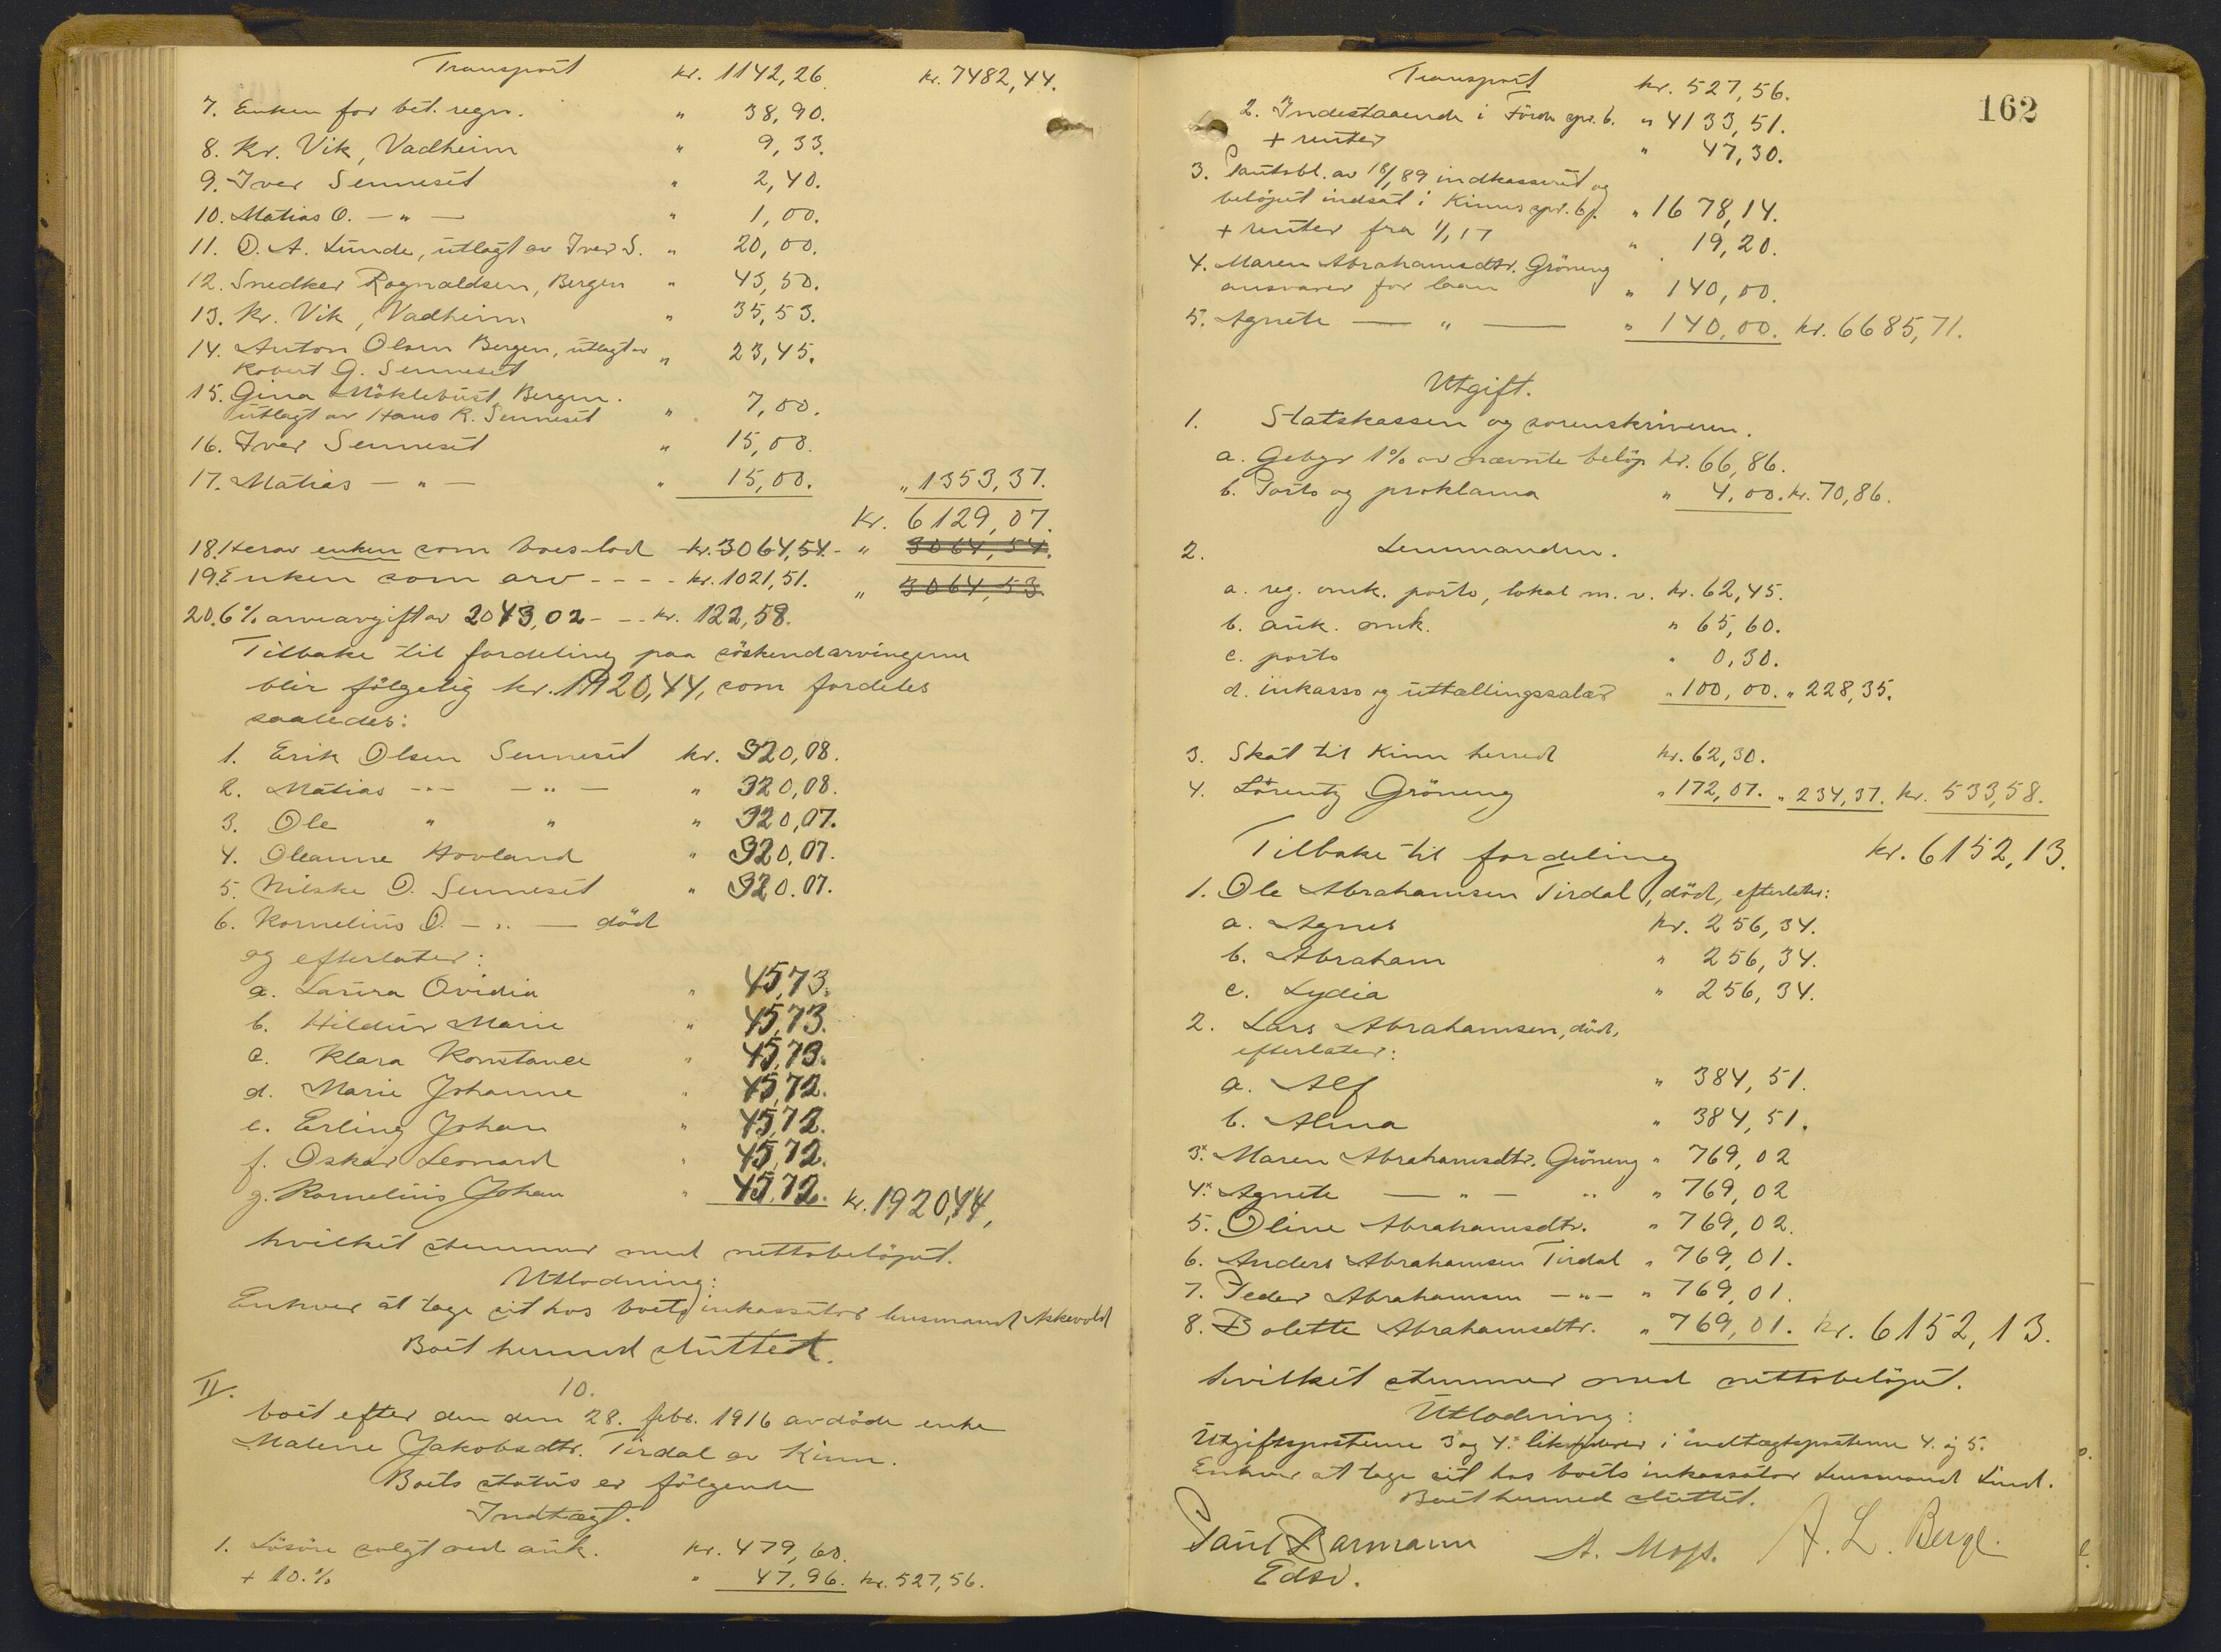 Transport kr. 1142,26 kr. 7482,44.
7. Enken for bet. regn. " 38,90.
8. Kr. Vik, Vadheim " 9,33.
9. Iver Senneset " 2,40.
10. Matias O. — " — " 1,00.
11. O. A. Lunde, utlagt av Iver S. " 20,00.
12. Snedker Rognaldsen, Bergen " 43,50.
13. Kr. Vik, Vadheim " 35,53.
14. Anton Olsen Bergen, utlagt av " 23,45.
Robert G. Senneset
15. Gina Möklebust, Bergen.
utlagt av Hans R. Senneset " 7,00.
16. Iver Senneset " 15,00.
17. Matias — " — " 15,00. " 1353,37.
Kr. 6129,07.
18. Herav enken som boeslod kr. 3064,54. - " 3064,54.
19. Enken som arv - - - - kr. 1021,51. " 3064,53.
20. 6% arveavgift av 2043,02 - - kr. 122,58.
Tilbake til fordeling paa söskendarvingerne
blir fölgelig kr. 1920,44, som fordeles
saaledes:
1. Erik Olsen Senneset kr. 320,08.
2. Matias -"- — " — " 320,08.
3. Ole " " " 320,07.
4. Oleanne Hovland " 320,07.
5. Nilske O. Senneset " 320.07.
6. Kornelius O. — " — död
og efterlater:
a. Laura Ovidia " 45,73.
b. Hildur Marie " 45,73.
c. Klara Konstance " 45,73.
d. Marie Johanne " 45,72.
e. Erling Johan " 45,72.
f. Oskar Leonard " 45,72.
g. Kornelius Johan " 45,72. kr. 1920,44,
hvilket stemmer med nettobelöpet.
Utlodning:
Enhver at tage sit hos boets inkassator lensmand Askevold
Boet hermed sluttet.
II. 10.
boet efter den den 28. febr. 1916 avdöde enke
Malene Jakobsdtr. Tirdal av Kinn.
Boets status er fölgende
Indtægt.
1. Lösöre solgt ved auk. kr. 479,60.
+ 10.% " 47,96. kr. 527,56.
162
Transport kr. 527,56.
2. Indestaaende i Förde spr. b. " 4133,51.
+ renter " 47,30.
3. Pantobl. av 18/1 89 indkasseret og
belöpet indsat i Kinns spr. bk. " 1678,14.
+ renter fra 1/1 17 " 19,20.
4. Maren Abrahamsdtr. Gröneng
ansvarer for laan " 140,00.
5. Agnete — " — " 140,00. kr. 6685,71.
Utgift.
1. Statskassen og sorenskriveren.
a. Gebyr 1% av nævnte belöp kr. 66,86.
b. Porto og proklama " 4,00. kr. 70,86.
2. Lensmanden.
a. reg. omk. porto, lokal m. v. kr. 62,45.
b. auk. omk. " 65,60.
c. porto " 0,30.
d. inkasso og uttællingssalær " 100,00. " 228,35.
3. Skat til Kinn herred kr. 62,30.
4. Lörentz Gröneng " 172,07. " 234,37. kr. 533,58.
Tilbake til fordeling kr. 6152,13.
1. Ole Abrahamsen Tirdal, död, efterlater:
a. Agnes kr. 256,34.
b. Abraham " 256,34.
c. Lydia " 256,34.
2. Lars Abrahamsen, död,
efterlater:
a. Alf " 384,51.
b. Alma " 384,51.
3.x Maren Abrahamsdtr. Gröneng " 769,02
4.x Agnete — " — " " 769,02
5. Oline Abrahamsdtr. " 769,02.
6. Anders Abrahamsen Tirdal " 769,01.
7. Peder Abrahamsen — " — " 769,01.
8. Bolette Abrahamsdtr. " 769,01. kr. 6152,13.
hvilket stemmer med nettobelöpet.
Utlodning:
Utgiftsposterne 3x og 4.x likviderer i indtægtsposterne 4. og 5.
Enhver at tage sit hos boets inkassator Lensmand Lund.
Boet hermed sluttet.
Paul Barmann A. Moss. A. L. Berge.
Edsv.